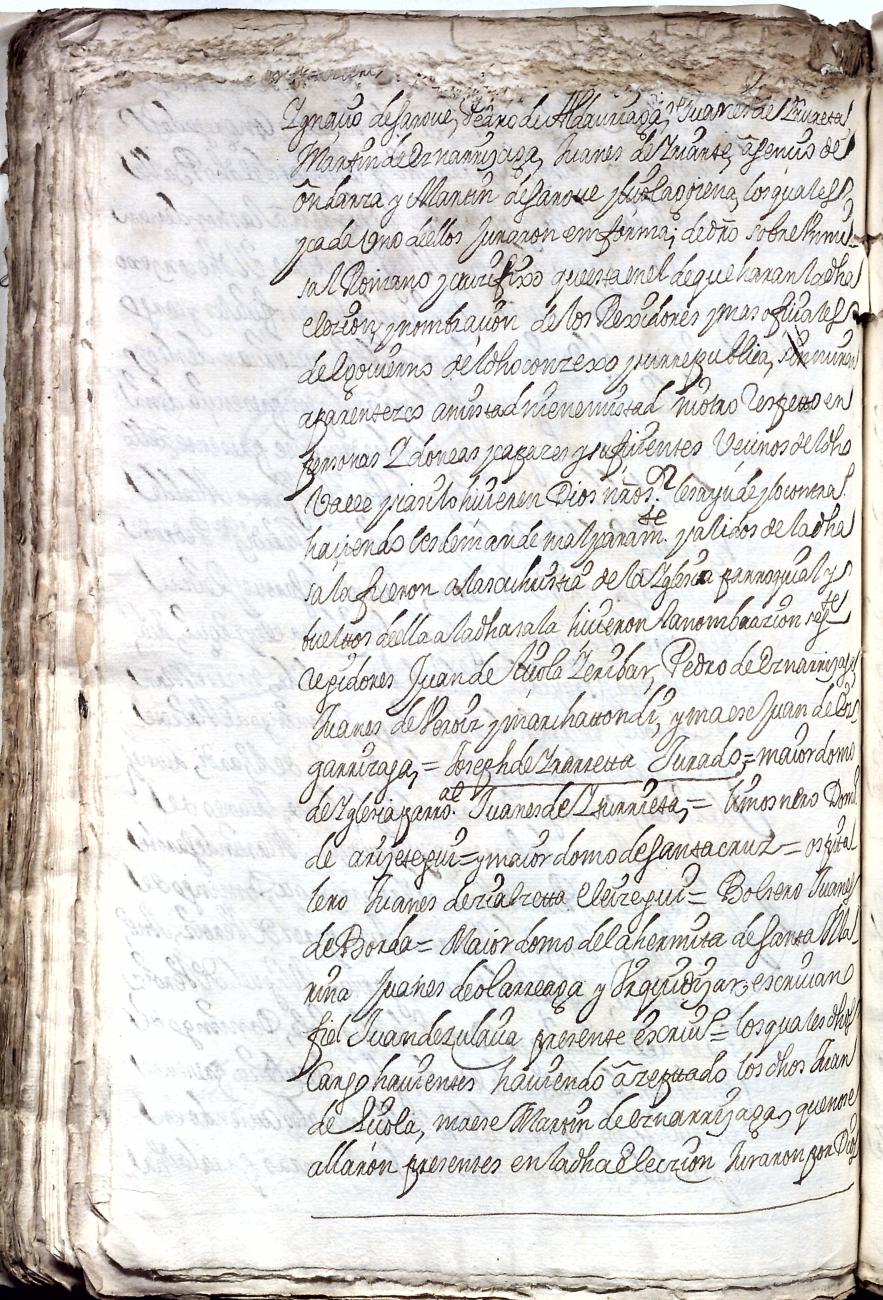 Ygnaçio de Sarove, Pedro de Alçuriaga, Juanes de Yrureta
Martin de Oznarrijaga, Juanes de Yriarte, asençio de
ondarza y Martin de Sarove y Luola goiena, los quales
y cada Uno dellos Juraron en forma, dedro sobre Un mi
sal Romano y crucifixo questa en el de que haran la dha
elezion, y nombraçion de los Rexidores y mas ofiçiales
del goviernno del dho conzexo y su rrepublica, sin mirar
a parentezco amistad ni enemistad ni otro Respetto en
personas Ydoneas capazes y sufiçientes Veçinos del dho
Valle y si asi lo hiçieren Dios nro sr. les ayude y lo contra.
haçiendo les demande mal y caramte. y salidos de la dha
sala fueron a la sachristia de la Yglesia parroquial y
bueltos de ella a la dha sala hiçieron la nombrazion sigte
regidores Juan de Luola Zeribar, Pedro de Oznarrijaga
Juanes de Veroiz y marchattondi, y maese Juan de
garrizaga, = Joseph de Yrarretta Jurado, = maiordomo
de Yglesia parroal. Juanes de Yrurrieta, = limosnero Domo
de arizetegui = y maiordomo de Santa cruz = ospita
lero Juanes de zabaletta eleizegui = Bolsero Juanes
de Borda = Maiordomo de la hermita de Santa Ma
rina Juanes de olarreaga y Yrquidijar, escrivano
fiel Juan de zulaica presente escrivo = los quales dhos
Cargo havientes haviendo açeptado los dhos Juan
de Luola, maese Martin de Oznarrijaga, que no se
allaron presentes en la dha Elección Juraron por Dios